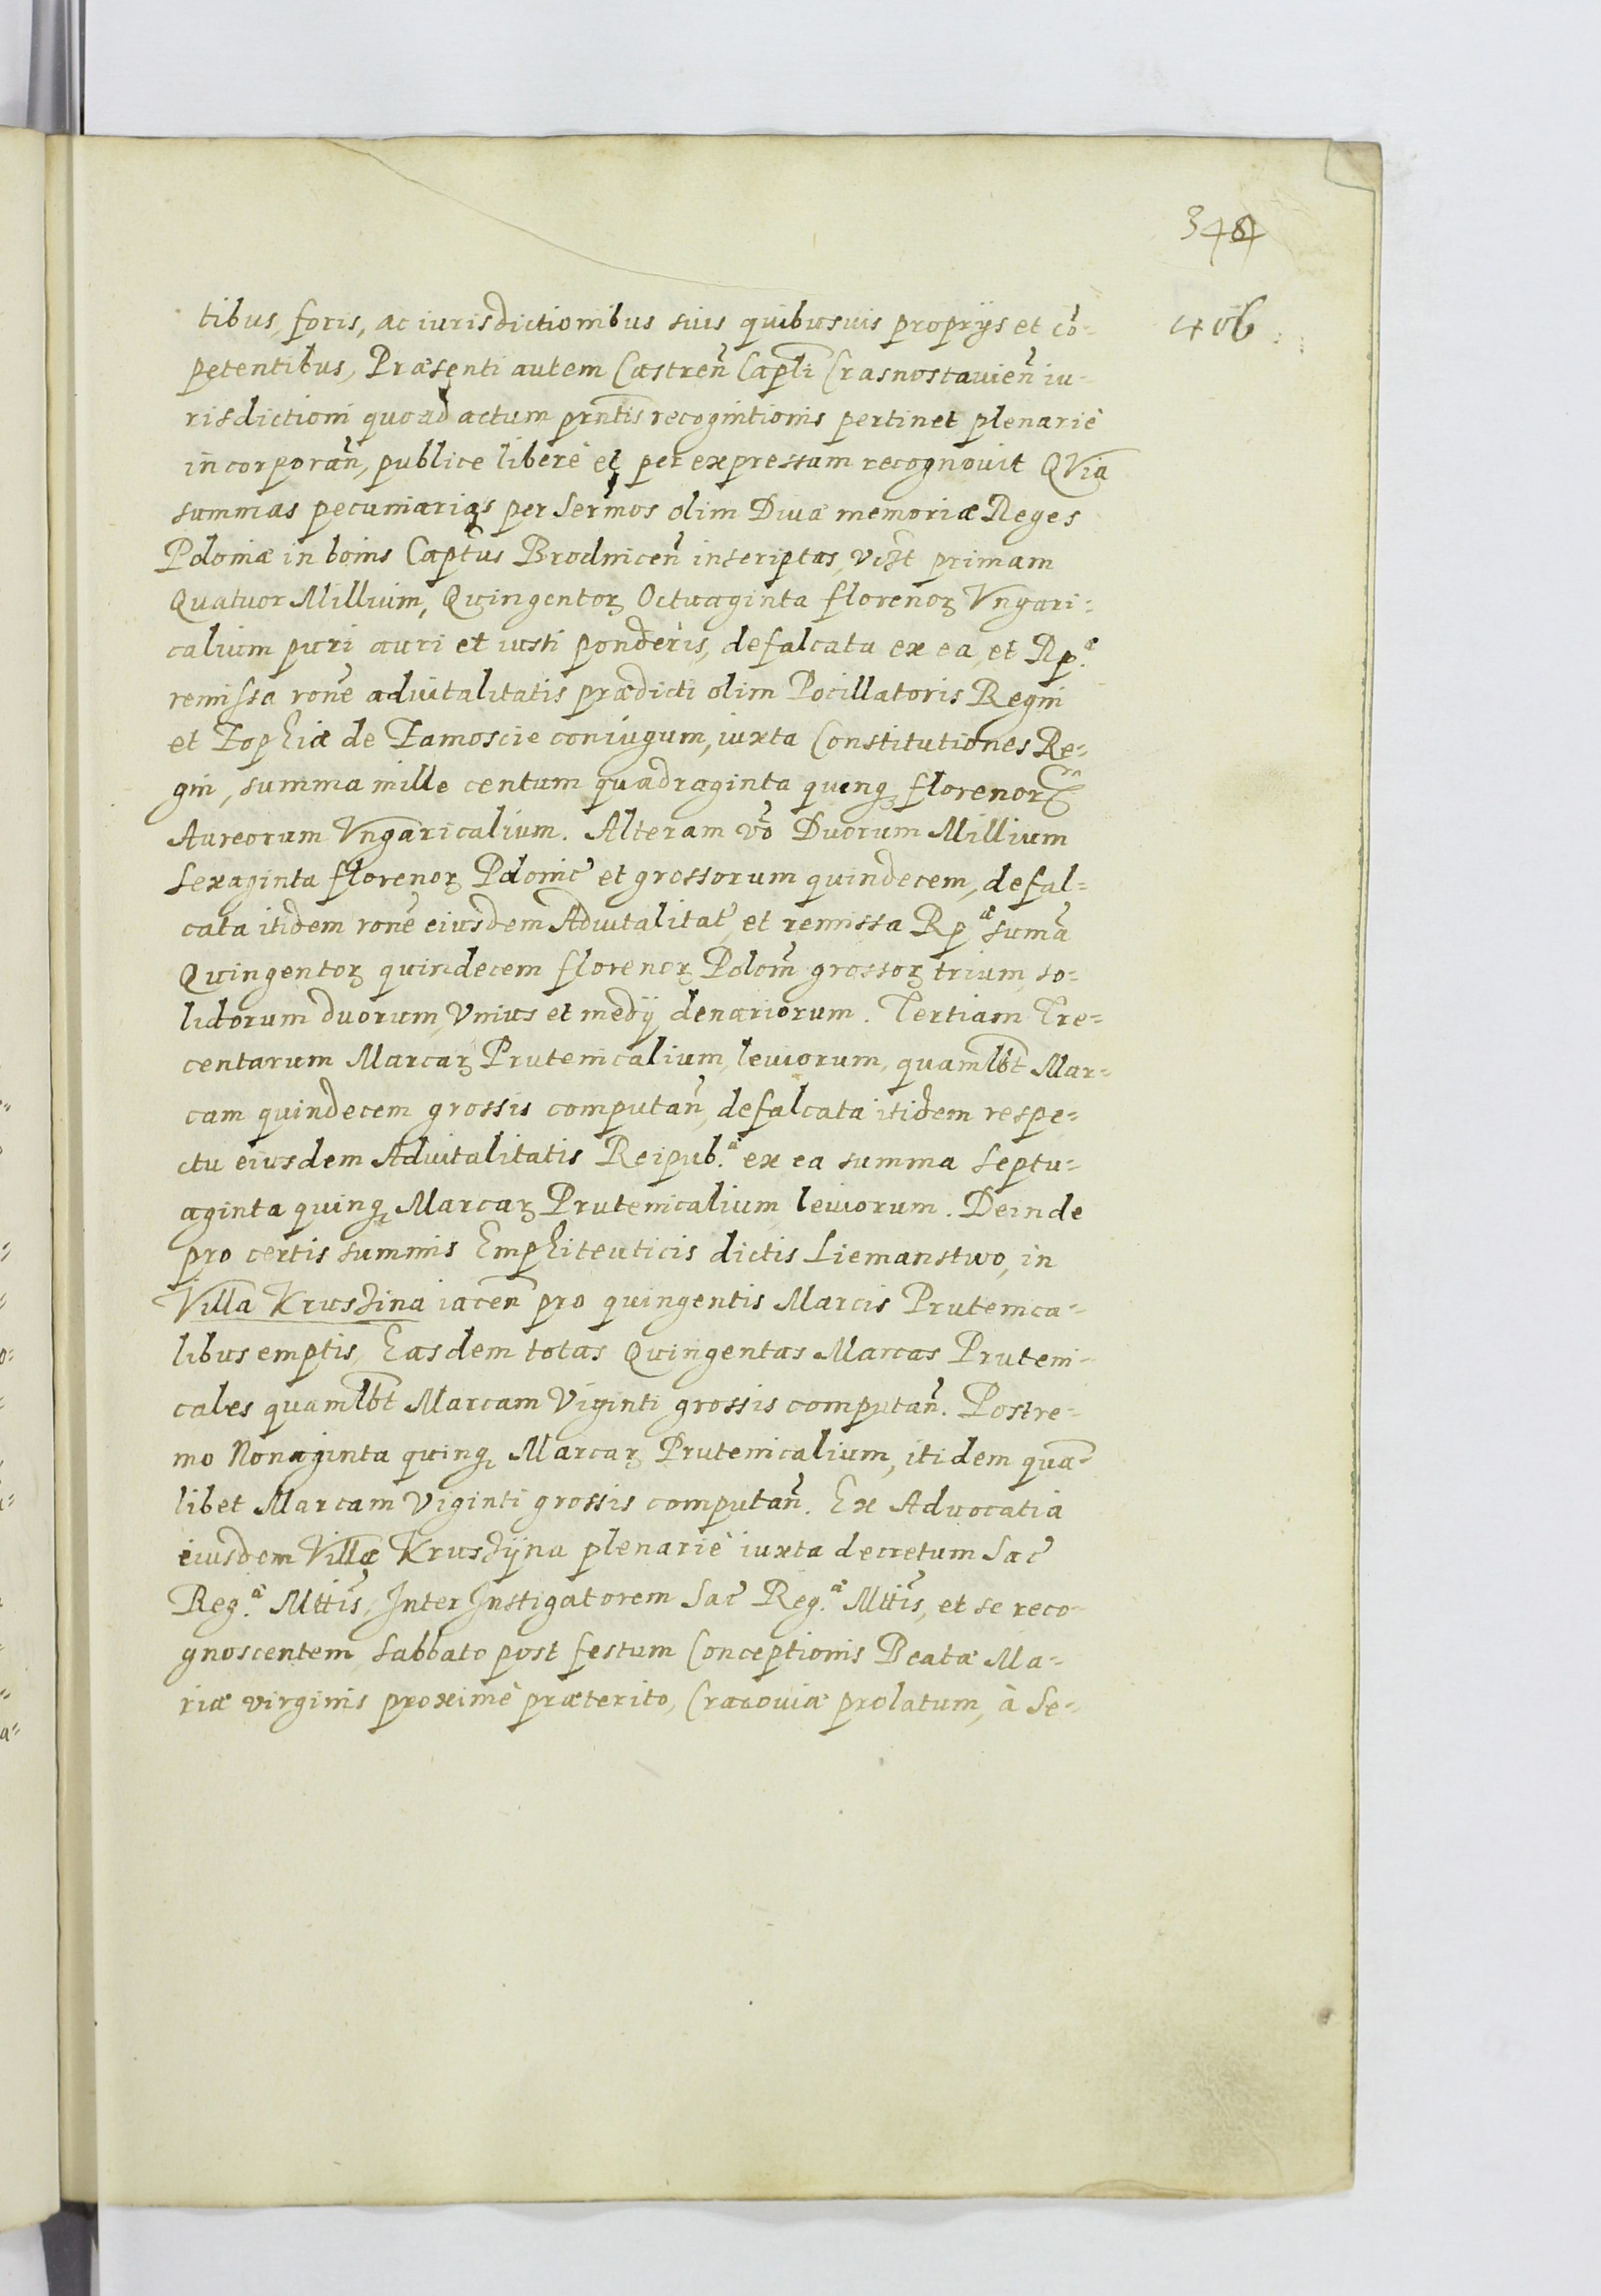 348
406
tibus, foris, ac iurisdictionibus suis quibusuis proprijs et cõ-
petentibus, Præsenti autem Castreñ Capłi Crasnostauieñ iu-
risdictioni quoad actum prñtis recognitionis pertinet plenariè
incorporañ, publice liberè et per expressam recognouit QVia
summas pecuniarias per Sermos olim Diuæ memoriæ Reges
Poloniæ in bonis Captus Brodniceñ inscriptas, vczt primam
Quatuor Millium, Quingentoꝝ Octuaginta florenoꝝ Vngari-
calium puri auri et iusti ponderis, defalcata ex ea, et Rp.ᵃ
remissa rone aduitalitatis prædicti olim Pocillatoris Regni
et Zophiæ de Zamoscie coniugum, iuxta Constitutiones Re-
gni, summa mille centum quadraginta quinqꝫ florenorꝝ
Aureorum Vngaricalium. Alteram vo Duorum Millium
Sexaginta florenoꝝ Polonic et grossorum quindecem, defal-
cata itidem rone eiusdem Aduitalitat, et remissa Rpᵃ sumã
Quingentoꝝ quindecem florenoꝝ Polon grossoꝝ trium, so-
lidorum duorum, Vnius et medij denariorum. Tertiam Tre-
centarum Marcaꝝ Prutenicalium, leuiorum, quamlbt Mar-
cam quindecem grossis computañ, defalcata itidem respe-
ctu eiusdem Aduitalitatis Reipub.ᵃ ex ea summa Septu-
aginta quinqꝫ Marcaꝝ Prutenicalium leuiorum. Deinde
pro certis summis Emphiteuticis dictis Liemanstwo, in
Villa Kruszina iaceñ pro quingentis Marcis Prutenica-
libus emptis, Easdem totas Quingentas Marcas Pruteni-
cales quamlbt Marcam Viginti grossis computañ. Postre-
mo Nonaginta quinqꝫ Marcaꝝ Prutenicalium, itidem quã-
libet Marcam Viginti grossis computañ. Ex Aduocatia
eiusdem Villæ Kruszijna plenariè iuxta decretum Sac
Reg.ᵃ Mttis, Inter Instigatorem Sac Reg.ᵃ Mttis, et se reco-
gnoscentem, Sabbato post festum Conceptionis Beatæ Ma-
riæ virginis proximè præterito, Cracouiæ prolatum, à Se-